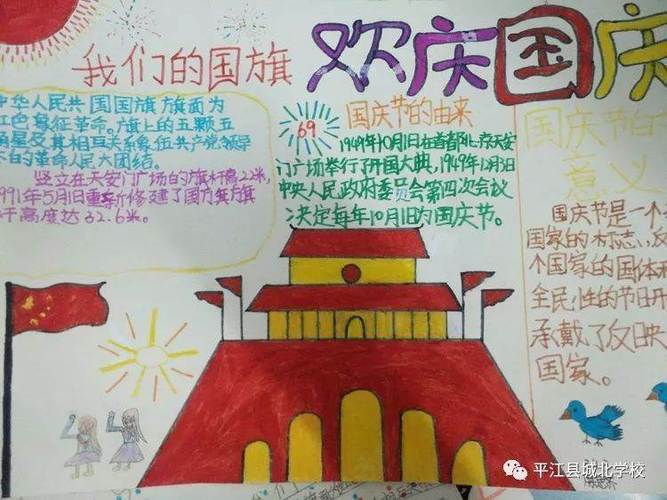 欢庆国庆
我们的国旗
中华人民共国国旗旗面为
红色象征革命。旗上的五颗五
角星及其相互关系象征共产党领导
下的革命人民大团结。
竖立在天安门广场的旗杆高22米,
1991年5月1日重新修建了国旗旗
杆高度达32.6米。
69
国庆节的由来
1949年10月1日在首都北京天安
门广场举行了开国大典,1949年12月3日
中央人民政府委员会第四次会议
决定每年10月1日为国庆节。
国庆节的
意义
国庆节是一个
国家的标志
个国家的国体
全民性的节日
承戴了反映
国家。
平江县城北学校